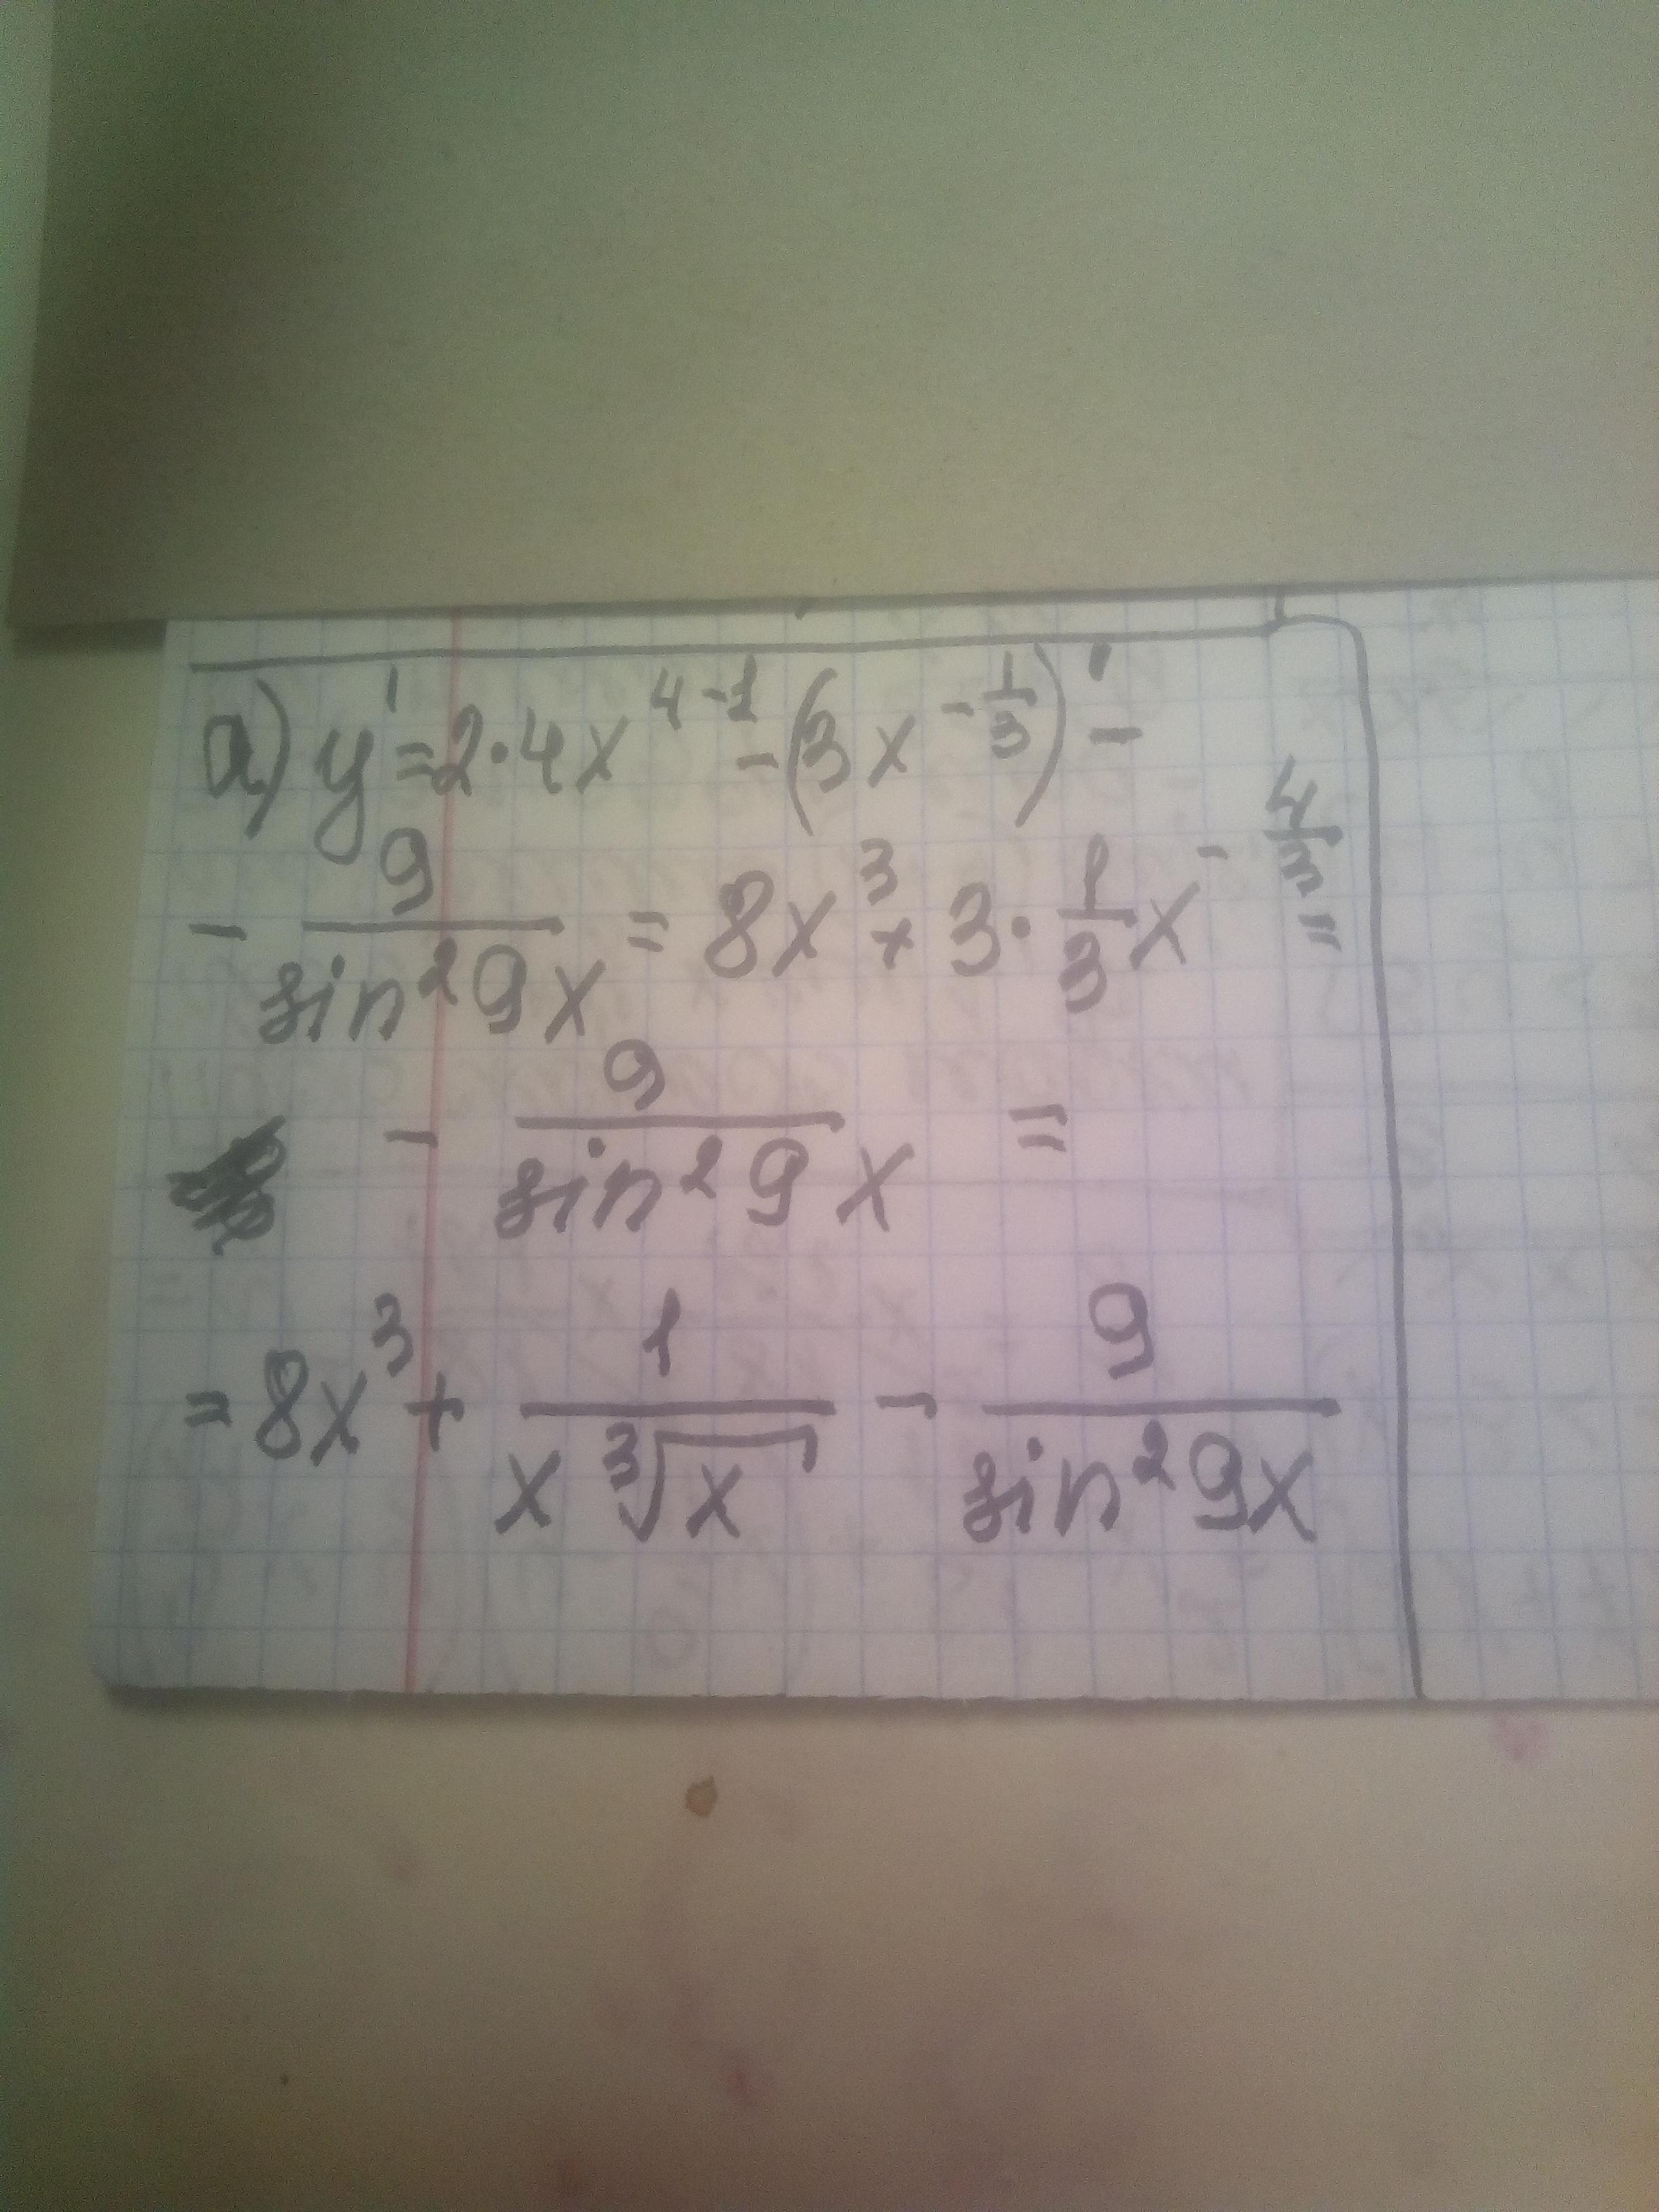 а) y' = 2·4x^{4-1} - (3x^{-\frac{1}{3}})' -
- \frac{9}{sin^2 9x} = 8x^3 + 3·\frac{1}{3}x^{-\frac{4}{3}} =
- \frac{9}{sin^2 9x} =
= 8x^3 + \frac{1}{x\sqrt[3]{x}} - \frac{9}{sin^2 9x}